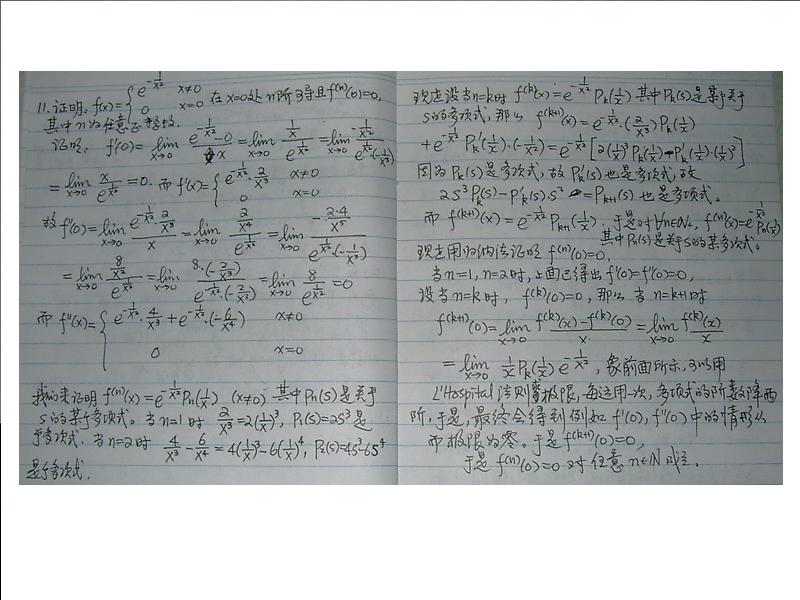 11. 证明: f(x)={ e^{-1/x²} x≠0
0 x=0 在x=0处n阶可导且f^{(n)}(0)=0,
其中n为任意正整数.
证明: f'(0)=lim_{x→0} (e^{-1/x²}-0)/x = lim_{x→0} (1/x)/e^{1/x²} = lim_{x→0} (-1/x²)/(e^{1/x²}·(-1/x³))
= lim_{x→0} x/e^{1/x²} = 0. 而f'(x)={ e^{-1/x²}·2/x³ x≠0
0 x=0
故f''(0)=lim_{x→0} (e^{-1/x²} 2/x³)/x = lim_{x→0} (2/x⁴)/e^{1/x²} = lim_{x→0} (-2·4/x⁵)/(e^{1/x²}·(-1/x³))
= lim_{x→0} (8/x²)/e^{1/x²} = lim_{x→0} (8·(-2/x³))/(e^{1/x²}·(-2/x³)) = lim_{x→0} 8/e^{1/x²} = 0
而 f''(x)={ e^{-1/x²}·4/x³+e^{-1/x²}·(-6/x⁴) x≠0
0 x=0
我们来证明 f^{(n)}(x)=e^{-1/x²}Pn(1/x) (x≠0) 其中Pn(s)是关于
s的某个多项式. 当n=1时 2/x³=2(1/x)³, P₁(s)=2s³是
个多项式. 当n=2时 4/x³-6/x⁴=4(1/x)³-6(1/x)⁴, P₂(s)=4s³-6s⁴
是个多项式.
现在设当n=k时 f^{(k)}(x)=e^{-1/x²}P_k(1/x) 其中P_k(s)是某个关于
s的多项式, 那么 f^{(k+1)}(x)=e^{-1/x²}·(2/x³)P_k(1/x)
+e^{-1/x²}P'_k(1/x)·(-1/x²)=e^{-1/x²}[2(1/x)³P_k(1/x)-P'_k(1/x)·(1/x)²]
因为P_k(s)是多项式, 故P'_k(s)也是多项式, 故
2s³P_k(s)-P'_k(s)·s² =P_{k+1}(s)也是多项式.
而 f^{(k+1)}(x)=e^{-1/x²}P_{k+1}(1/x). 于是对∀n∈N, f^{(n)}(x)=e^{-1/x²}Pn(1/x)
其中Pn(s)是关于s的某多项式.
现在用归纳法证明 f^{(n)}(0)=0,
当n=1, n=2时, 上面已得出f'(0)=f''(0)=0,
设当n=k时, f^{(k)}(0)=0, 那么当n=k+1时
f^{(k+1)}(0)=lim_{x→0} (f^{(k)}(x)-f^{(k)}(0))/x = lim_{x→0} f^{(k)}(x)/x
=lim_{x→0} 1/x P_k(1/x)e^{-1/x²}, 象前面所示, 可以用
L'Hospital 法则求极限, 每运用一次, 多项式的阶数降两
阶, 于是, 最终会得到例如f'(0), f''(0)中的情形从
而极限为零. 于是f^{(k+1)}(0)=0,
于是f^{(n)}(0)=0对任意n∈N成立.